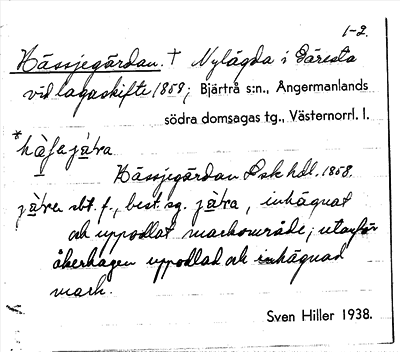 1-2.
Hässjegärdan. † Nylägda i Säresta
vid lagaskifte 1859; Bjärtrå s:n., Ångermanlands
södra domsagas tg., Västernorrl. l.
Hässjegärdan Lsk hdl. 1858.
best. sg. inhägnat
och uppodlat markområde; utanför
åkerhagen uppodlad och inhägnad
mark.
Sven Hiller 1938.